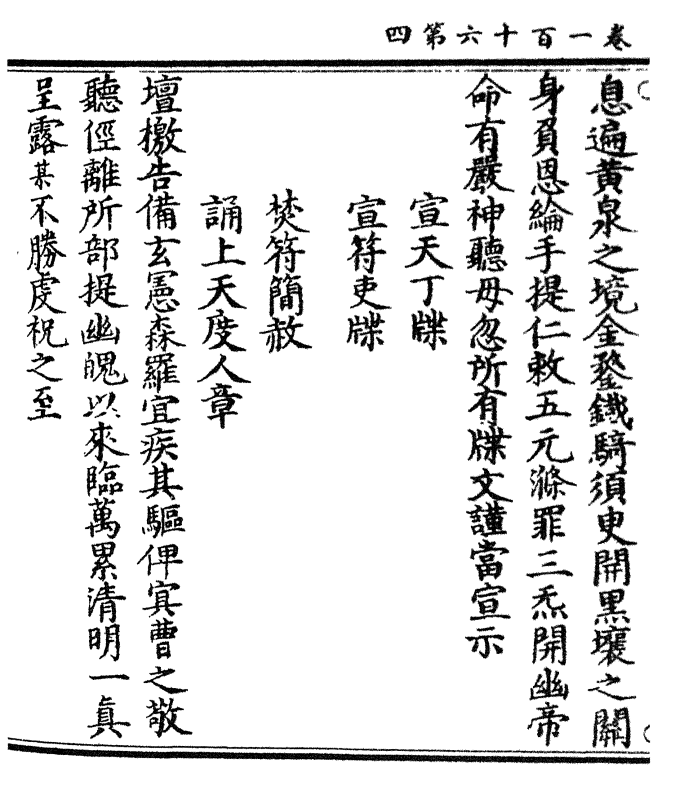 卷一百十六第四
息遍黃泉之境金鍪鐵騎須臾開黑壤之關
身負恩綸手提仁敕五元滌罪三炁開幽帝
命有嚴神聽毋忽所有牒文謹當宣示
宣天丁牒
宣符吏牒
焚符簡赦
誦上天度人章
壇檄告備玄憲森羅宜疾其驅俾冥曹之敬
聽俓離所部提幽魄以來臨萬累清明一真
呈露某不勝虔祝之至